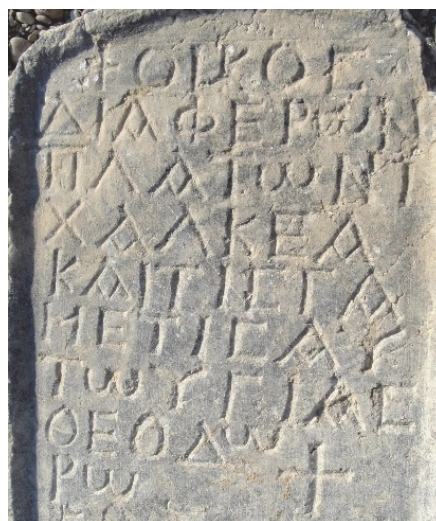 +ΟΙΚΟϹ
ΔΙΑΦΕΡΩΝ
ΠΛΑΤΩΝΙ
ΧΑΛΚΕΑ
ΚΑΙΤΙϹΓΑ
ΜΕΤΙϹΑΥ
ΤΩΥΓΙΑϹ
ΘΕΟΔΩ +
ΡΩ